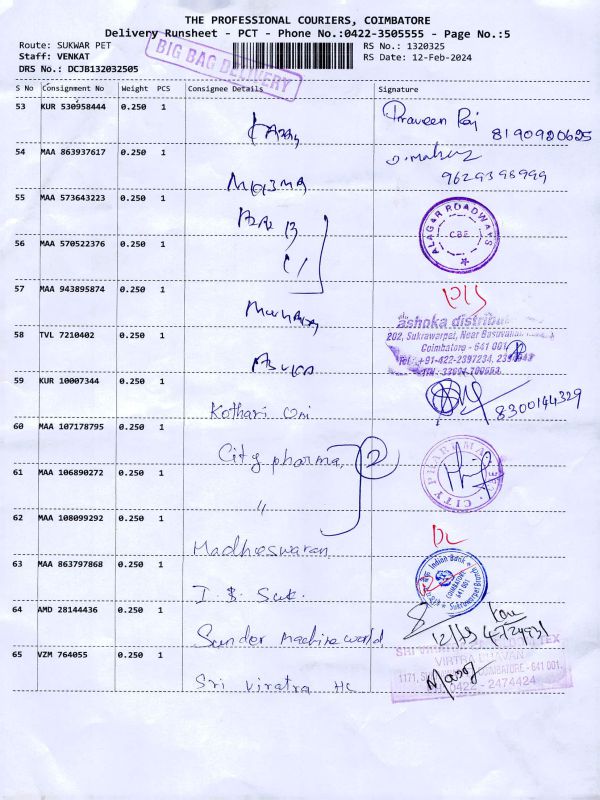 THE PROFESSIONAL COURIERS, COIMBATORE
Delivery Runsheet - PCT - Phone No.:0422-3505555 - Page No.:5
Route: SUKWAR PET
RS No.: 1320325
Staff: VENKAT
RS Date: 12-Feb-2024
DRS No.: DCJB132032505
BIG BAG DELIVERY
S No Consignment No Weight PCS Consignee Details Signature
53 KUR 530958444 0.250 1
Praveen Raj
8190920625
54 MAA 863937617 0.250 1
9629398999
55 MAA 573643223 0.250 1
ALAGAR ROADWAYS
CBE
56 MAA 570522376 0.250 1
57 MAA 943895874 0.250 1
58 TVL 7210402 0.250 1
ashoka distribut
202, Sukrawarpet, Near Basuvanna
Coimbatore - 641 001
Tel : +91-422-2397234,
59 KUR 10007344 0.250 1
Kothari
8300144329
60 MAA 107178795 0.250 1
City pharma, 2
CITY PHARMA
61 MAA 106890272 0.250 1
"
62 MAA 108099292 0.250 1
Madheswaran
DL
63 MAA 863797868 0.250 1
I B. Suk.
Indian Bank
COIMBATORE
641 001
64 AMD 28144436 0.250 1
Sunder Machine world
65 VZM 764055 0.250 1
Sri Viratra HC
COIMBATORE - 641 001.
0422 - 2474424